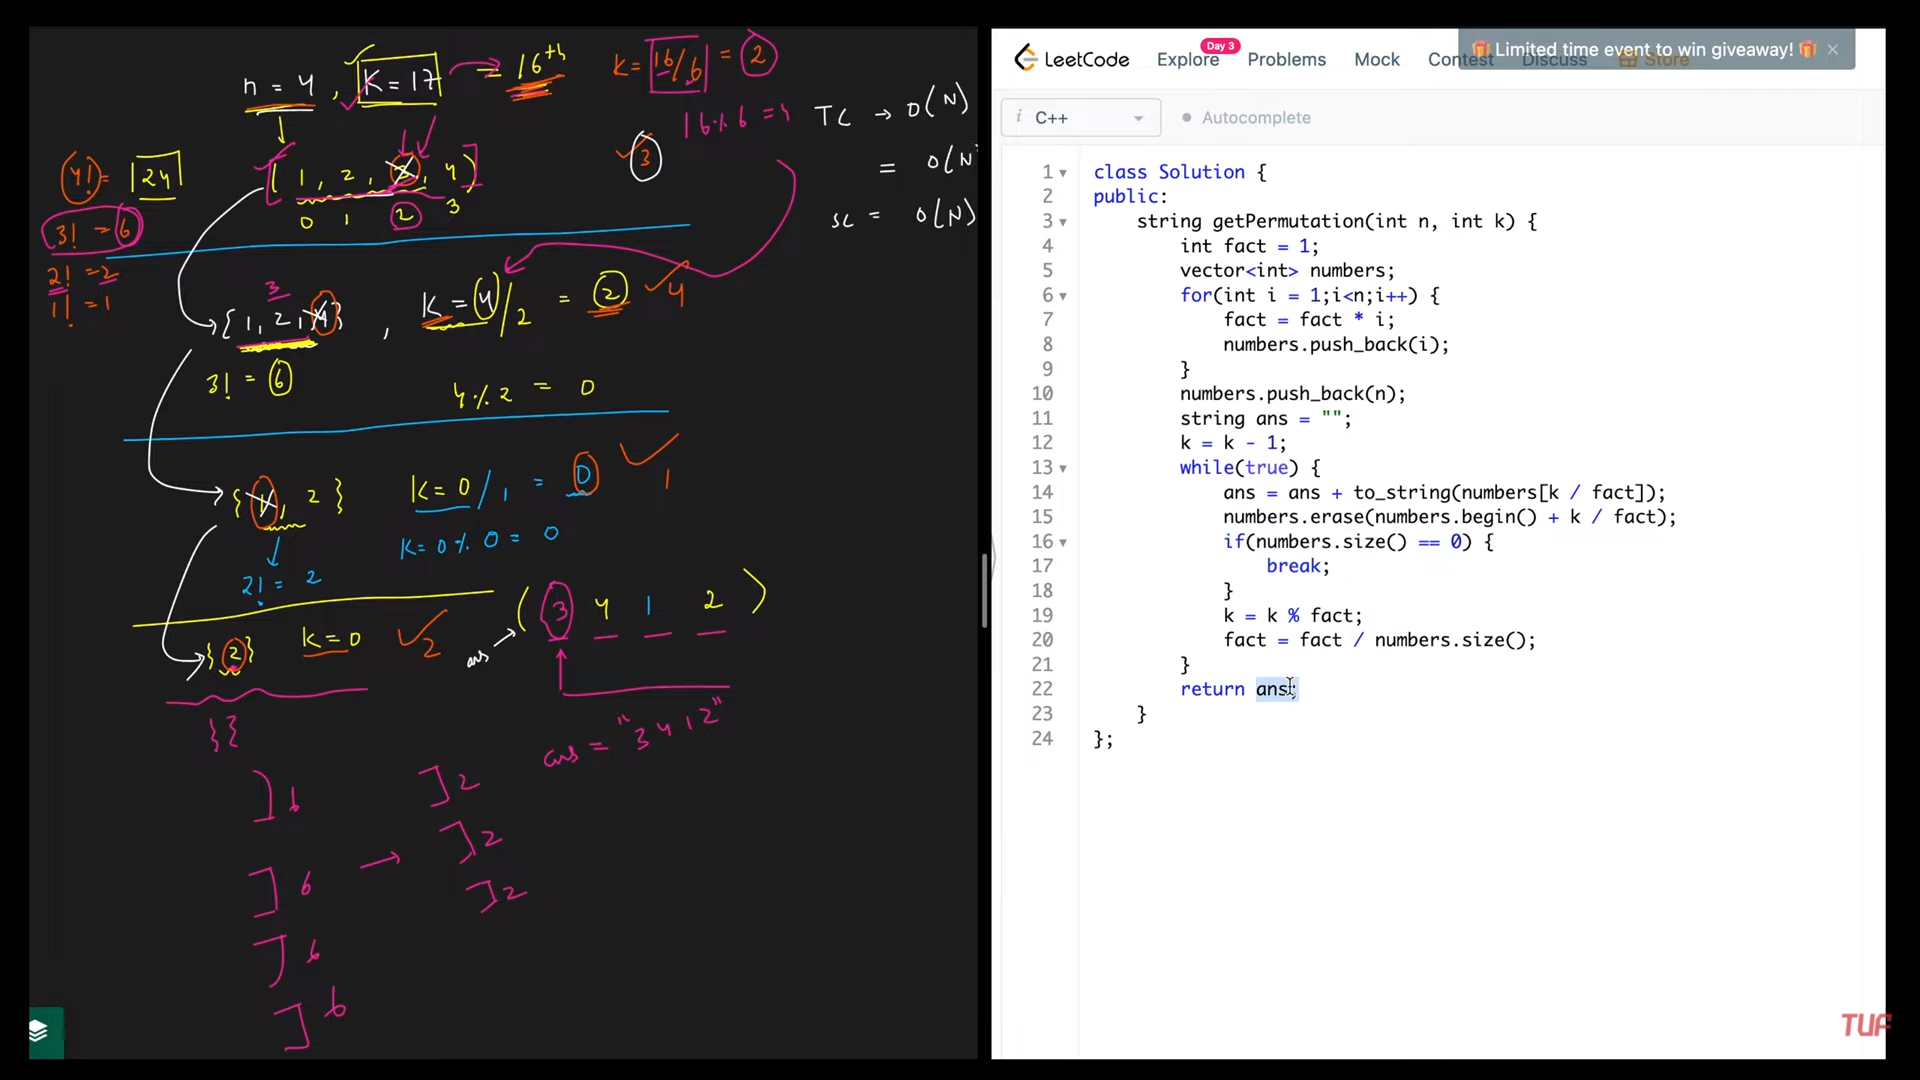 n = 4 , K = 17 = 16th
K = 16/6 = 2
16 % 6 = 4
TC → O(N)
= O(N
SC = O(N)
4! = 24
3! = 6
2! = 2
1! = 1
{ 1, 2, 3, 4 }
0 1 2 3
3
3
{1, 2, 4} , K = 4/2 = 2 4
3! = 6
4 % 2 = 0
{ 1, 2 } K = 0/1 = 0 1
K = 0 % 0 = 0
2! = 2
{2} K = 0 2
ans ( 3 4 1 2 )
{}
ans = "3412"
] 6 ] 2
] 2
] 6 → ] 2
] 6
] 6
LeetCode Explore Day 3 Problems Mock Contest Discuss Store
🎁 Limited time event to win giveaway! 🎁 ×
i C++ Autocomplete
1 class Solution {
2 public:
3 string getPermutation(int n, int k) {
4 int fact = 1;
5 vector<int> numbers;
6 for(int i = 1;i<n;i++) {
7 fact = fact * i;
8 numbers.push_back(i);
9 }
10 numbers.push_back(n);
11 string ans = "";
12 k = k - 1;
13 while(true) {
14 ans = ans + to_string(numbers[k / fact]);
15 numbers.erase(numbers.begin() + k / fact);
16 if(numbers.size() == 0) {
17 break;
18 }
19 k = k % fact;
20 fact = fact / numbers.size();
21 }
22 return ans;
23 }
24 };
TUF